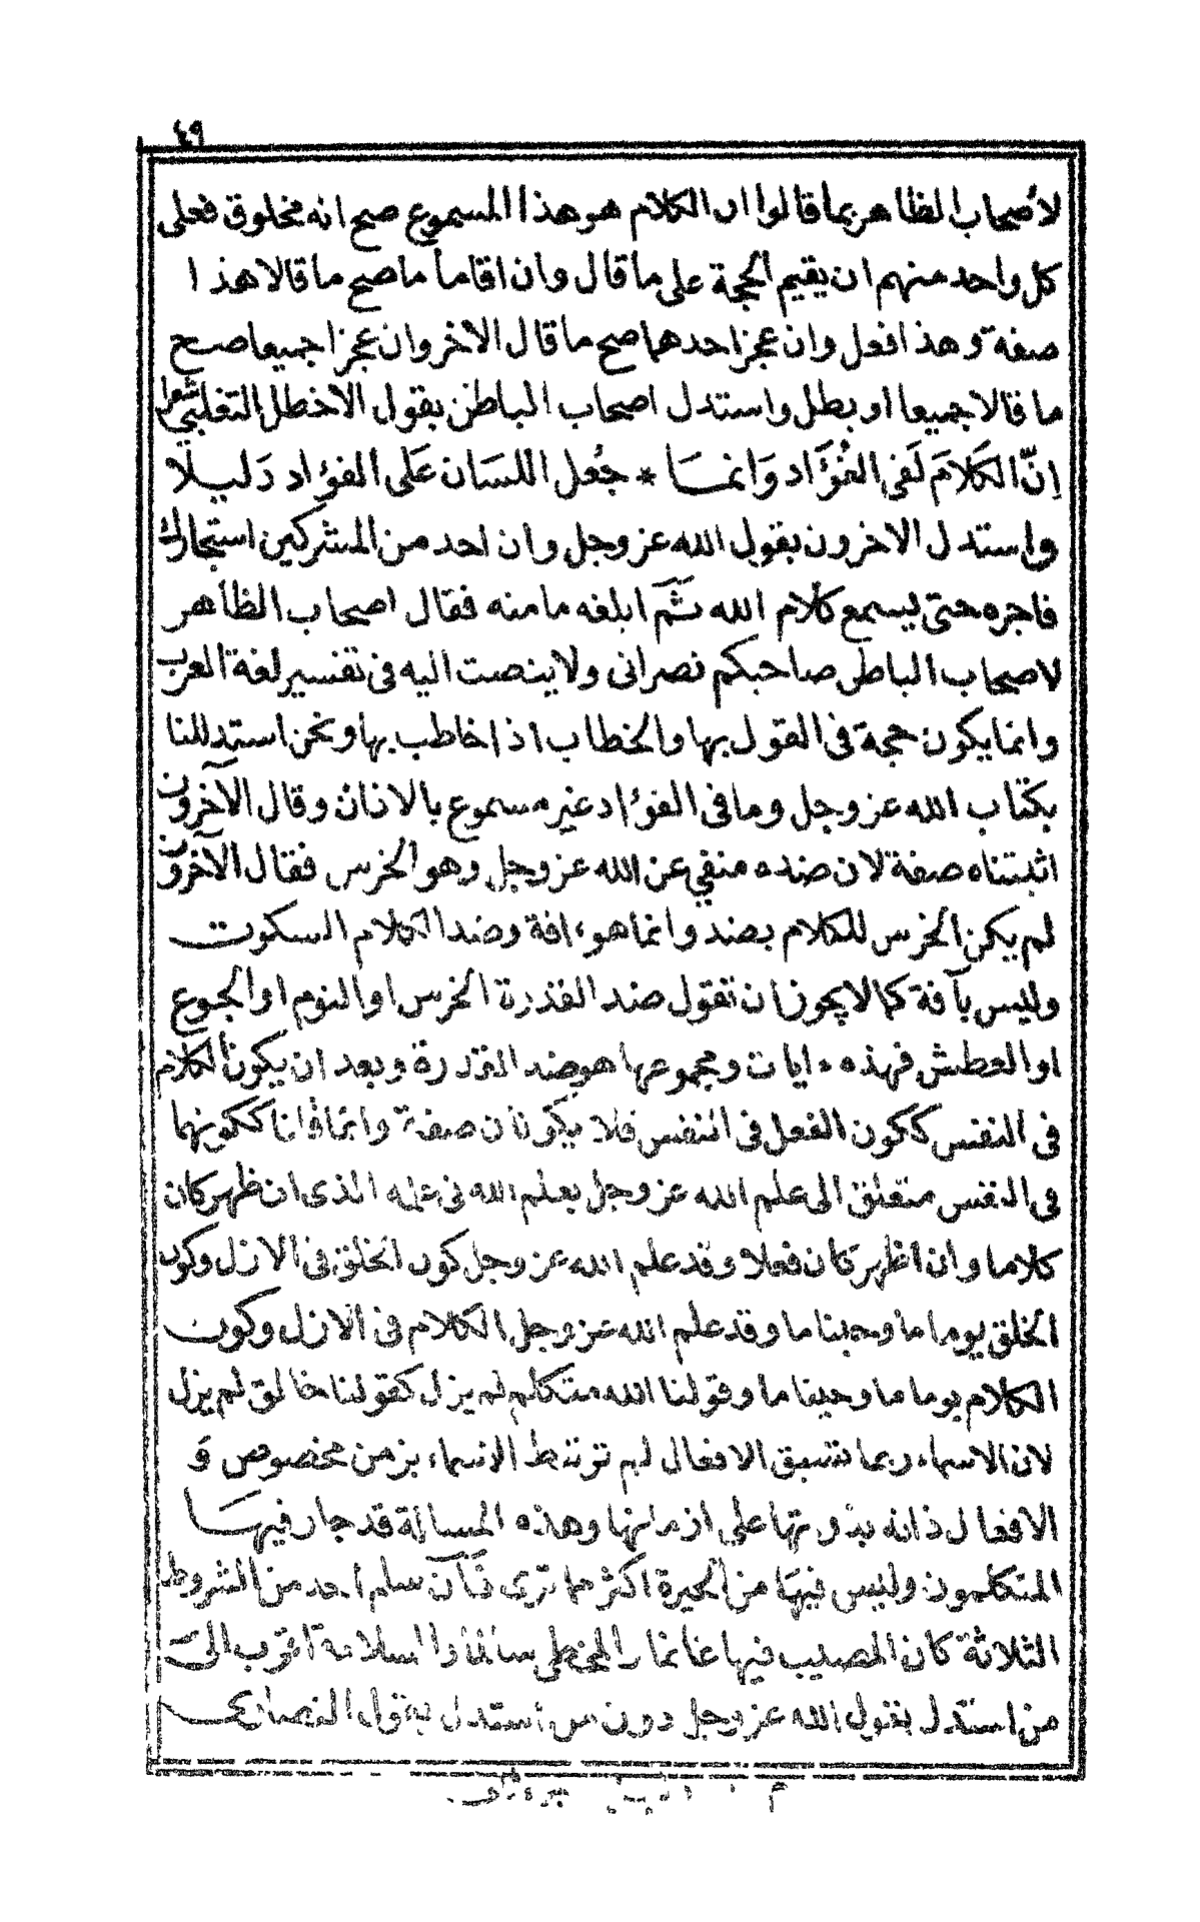 ٤٩
لأصحاب الظاهر بما قالوا ان الكلام هو هذا المسموع صح انه مخلوق فعلى
كل واحد منهم ان يقيم الحجة على ما قال وان اقاما ما صح ما قالا هذا
صفة وهذا فعل وان عجز احدهما صح ما قال الاخر وان عجزا جميعا صح
ما قالا جميعا او بطل واستدل اصحاب الباطن بقول الاخطل التغلبي شعرا
اِنّ الكَلامَ لَفى الفُؤَاد وَانمَا * جُعل اللسَان عَلى الفؤاد دَليلا
واستدل الاخرون بقول الله عز وجل وان احد من المشركين استجارك
فاجره حتى يسمع كلام الله ثَمَ ابلغه مامنه فقال اصحاب الظاهر
لاصحاب الباطن صاحبكم نصرانى ولا ينصت اليه فى تفسير لغة العرب
وانما يكون حجة فى القول بها والخطاب اذا خاطب بها ونحن استدللنا
بكتاب الله عز وجل وما فى الفؤاد غير مسموع بالاذان وقال الآخرون
اثبتناه صفة لان ضده منفي عن الله عز وجل وهو الخرس فقال الآخرون
لم يكن الخرس للكلام بضد وانما هو ءافة وضد الكلام السكوت
وليس بآفة كما لا يجوز ان تقول ضد القدرة الخرس او النوم او الجوع
او العطش فهذه ءايات ومجموعها هو ضد القدرة وبعد ان يكون الكلام
فى النفس ككون الفعل فى النفس فلا يكونان صفة وانما كانا ككونهما
فى النفس متعلق الى علم الله عز وجل بعلم الله فى علمه الذى ان ظهر كان
كلاما وان اظهر كان فعلا وقد علم الله عز وجل كون الخلق فى الازل وكون
الخلق يوما ما وحينا ما وقد علم الله عز وجل الكلام فى الازل وكون
الكلام يوما ما وحينا ما وقولنا الله متكلم لم يزل كقولنا خالق لم يزل
لان الاسماء ربما تسبق الافعال لم ترتبط الاسماء بزمن مخصوص و
الافعال دالة بذواتها على ازمانها وهذه المسالة قد حار فيها
المتكلمون وليس فيها من الحيرة اكثر مما ترى فان سلم احد من الشروط
الثلاثة كان المصيب فيها غانما والمخطى سالما والسلامة اقرب الى
من استدل بقول الله عز وجل دون من استدل بقول النصارى